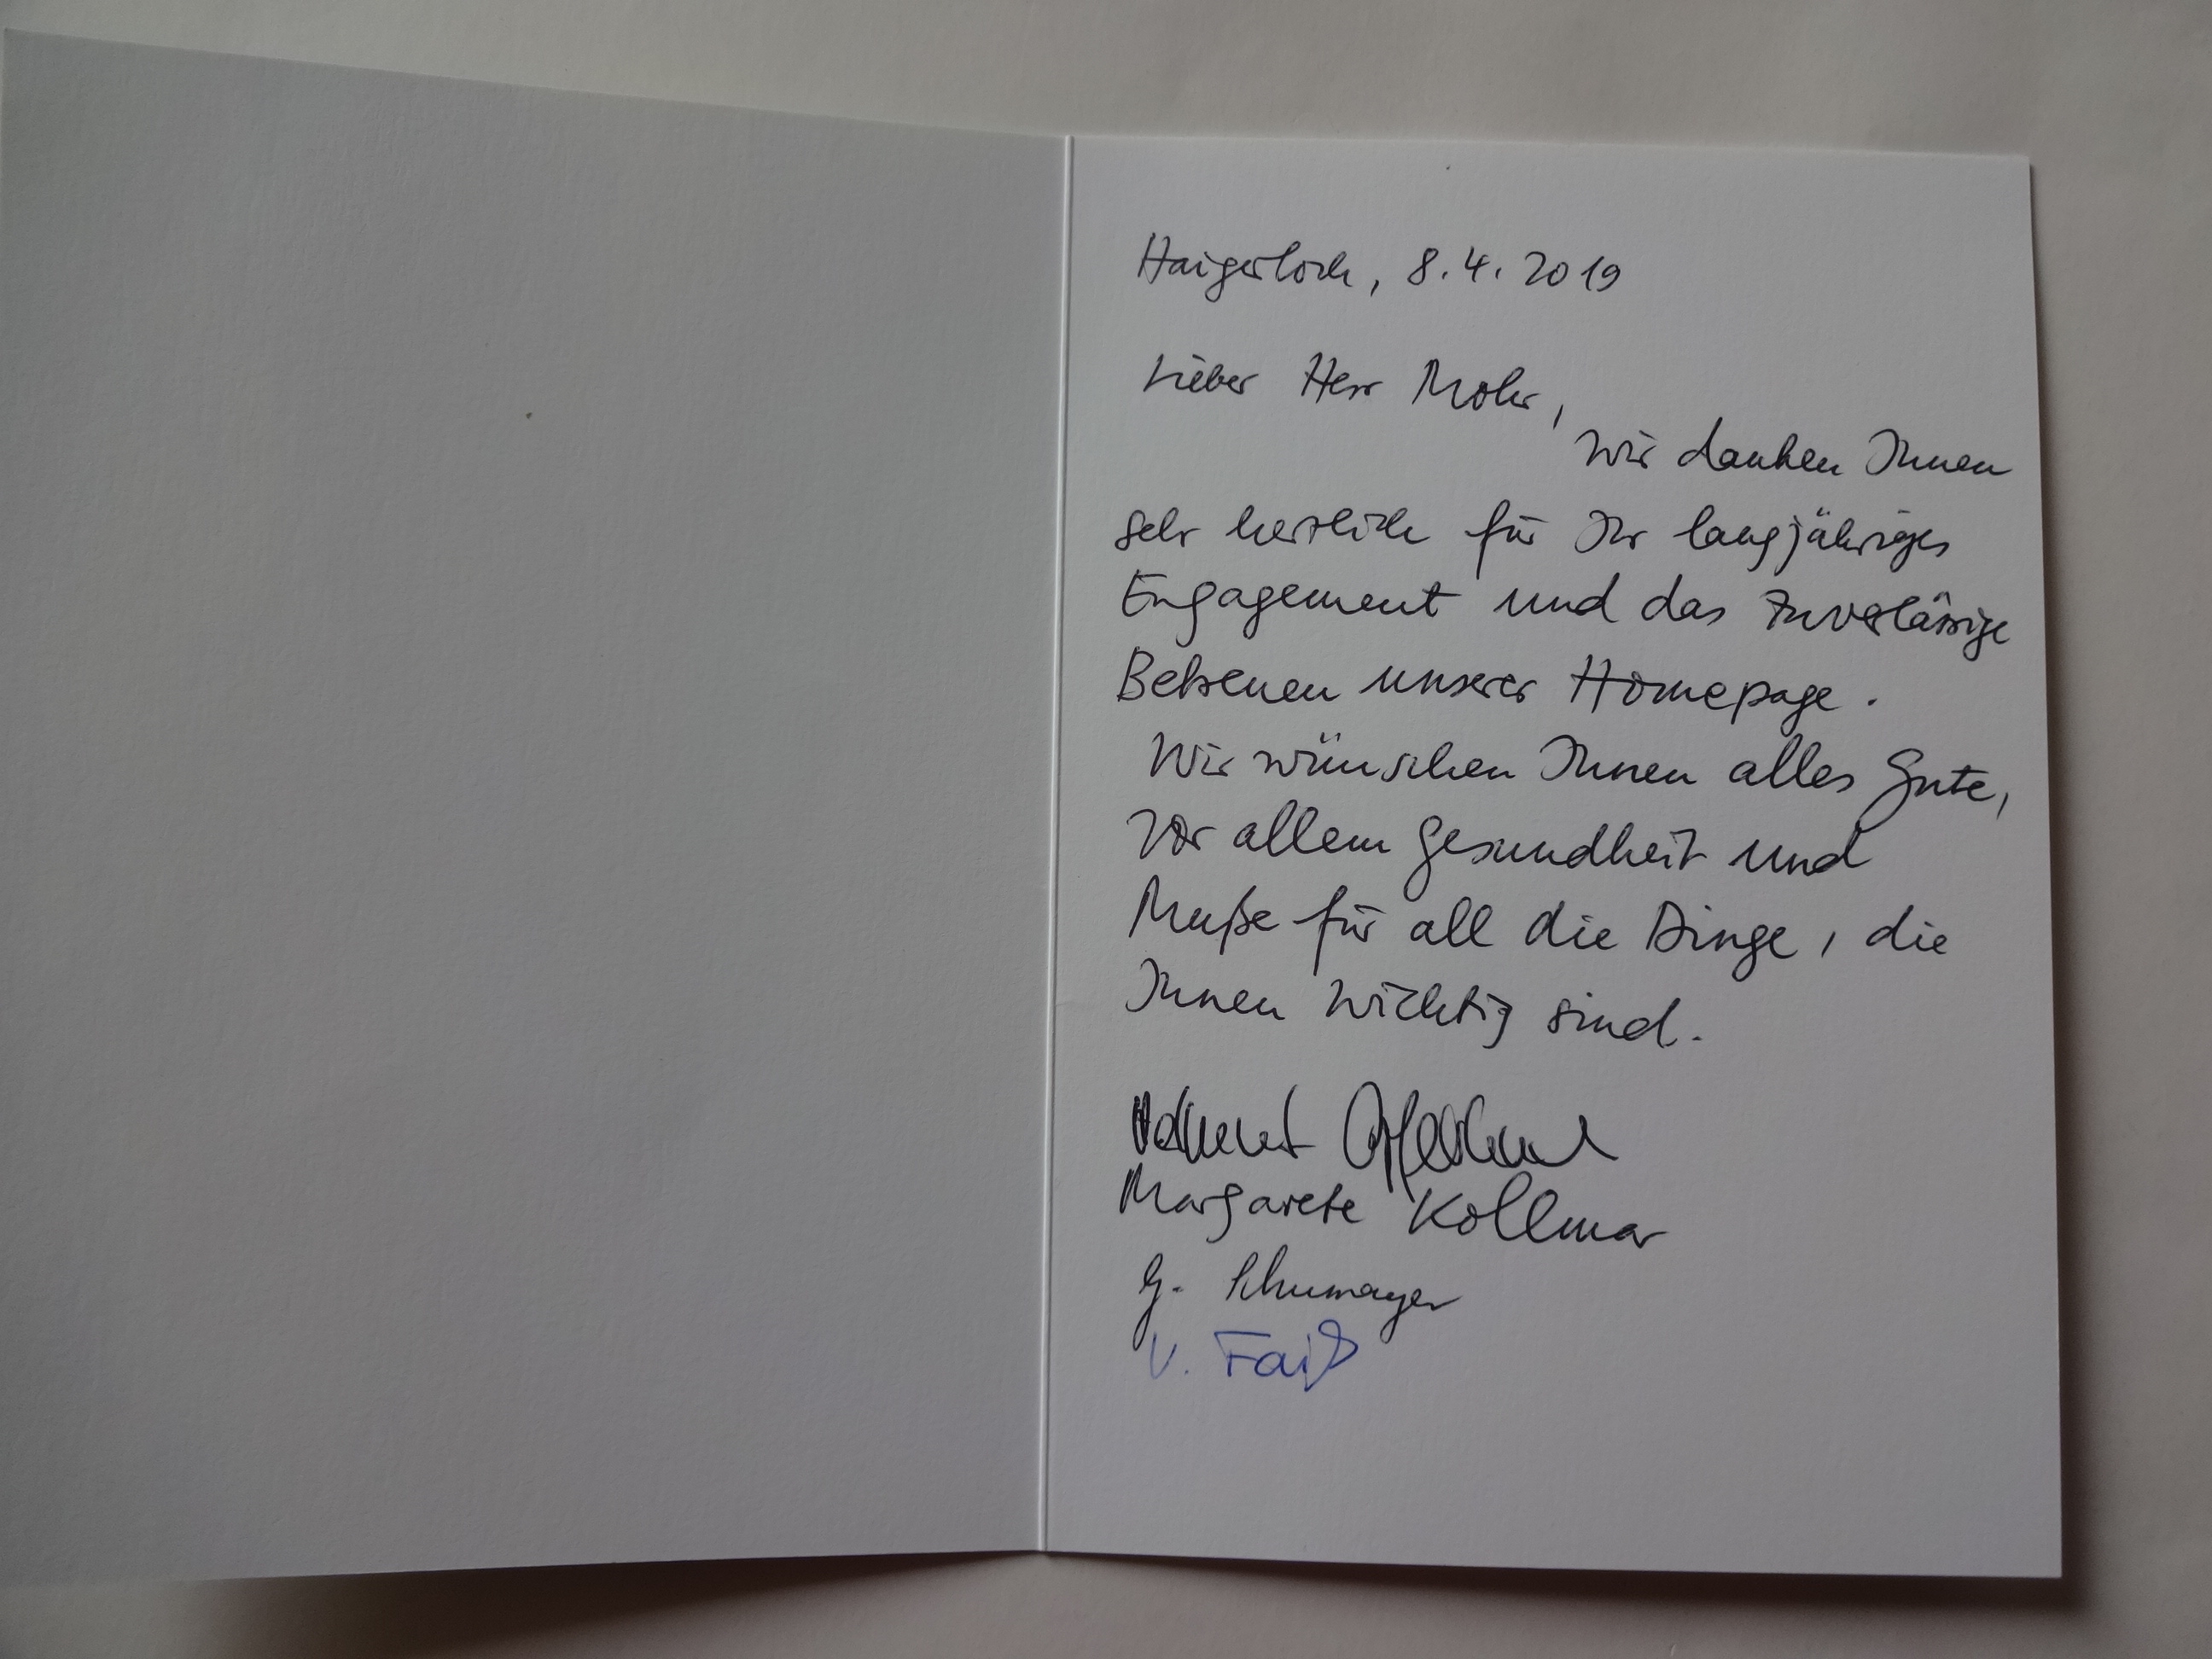 Haigerloch, 8.4.2019
Lieber Herr Mohr,
wir danken Ihnen
sehr herzlich für Ihr langjähriges
Engagement und das zuverlässige
Betreuen unserer Homepage.
Wir wünschen Ihnen alles Gute,
vor allem Gesundheit und
Muße für all die Dinge, die
Ihnen wichtig sind.
Margarete Kollmar
G. Schumayer
V. Faiß